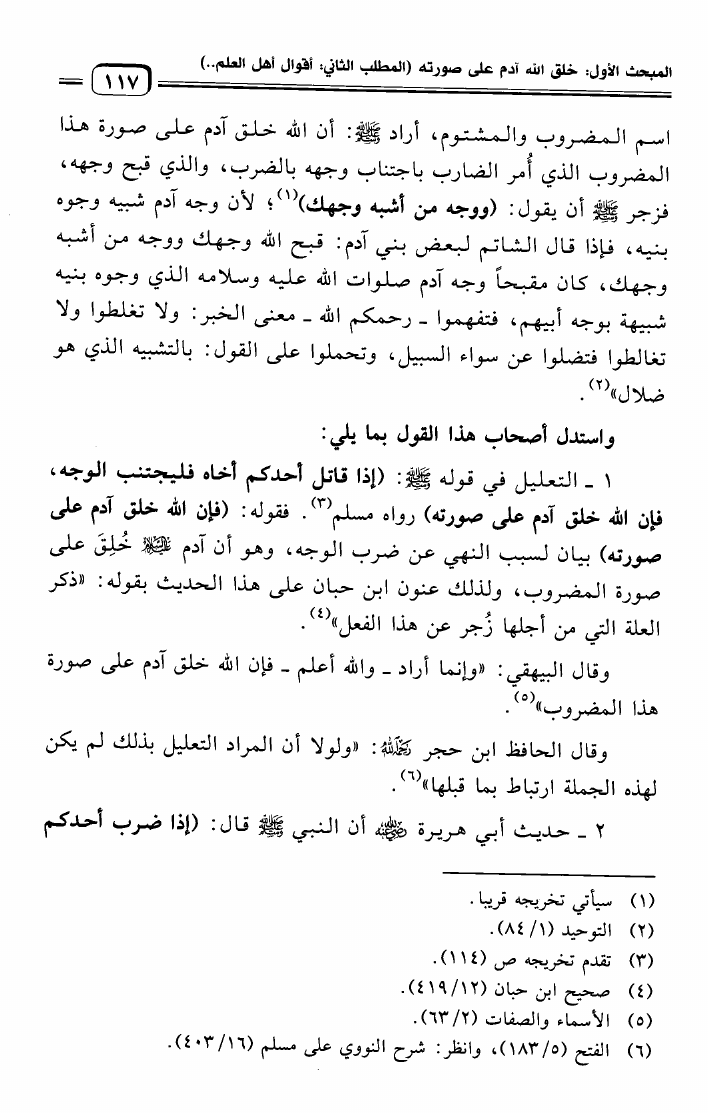 المبحث الأول: خلق الله آدم على صورته (المطلب الثاني: أقوال أهل العلم..)
١١٧
اسم المضروب والمشتوم، أراد ﷺ: أن الله خلق آدم على صورة هذا
المضروب الذي أُمر الضارب باجتناب وجهه بالضرب، والذي قبح وجهه،
فزجر ﷺ أن يقول: (ووجه من أشبه وجهك)(١)؛ لأن وجه آدم شبيه وجوه
بنيه، فإذا قال الشاتم لبعض بني آدم: قبح الله وجهك ووجه من أشبه
وجهك، كان مقبحاً وجه آدم صلوات الله عليه وسلامه الذي وجوه بنيه
شبيهة بوجه أبيهم، فتفهموا ـ رحمكم الله ـ معنى الخبر: ولا تغلطوا ولا
تغالطوا فتضلوا عن سواء السبيل، وتحملوا على القول: بالتشبيه الذي هو
ضلال»(٢).
واستدل أصحاب هذا القول بما يلي:
١ ـ التعليل في قوله ﷺ: (إذا قاتل أحدكم أخاه فليجتنب الوجه،
فإن الله خلق آدم على صورته) رواه مسلم(٣). فقوله: (فإن الله خلق آدم على
صورته) بيان لسبب النهي عن ضرب الوجه، وهو أن آدم عليه السلام خُلِقَ على
صورة المضروب، ولذلك عنون ابن حبان على هذا الحديث بقوله: «ذكر
العلة التي من أجلها زُجر عن هذا الفعل»(٤).
وقال البيهقي: «وإنما أراد ـ والله أعلم ـ فإن الله خلق آدم على صورة
هذا المضروب»(٥).
وقال الحافظ ابن حجر رحمه الله: «ولولا أن المراد التعليل بذلك لم يكن
لهذه الجملة ارتباط بما قبلها»(٦).
٢ ـ حديث أبي هريرة رضي الله عنه أن النبي ﷺ قال: (إذا ضرب أحدكم
(١) سيأتي تخريجه قريبا.
(٢) التوحيد (٨٤/١).
(٣) تقدم تخريجه ص (١١٤).
(٤) صحيح ابن حبان (٤١٩/١٢).
(٥) الأسماء والصفات (٦٣/٢).
(٦) الفتح (١٨٣/٥)، وانظر: شرح النووي على مسلم (٤٠٣/١٦).